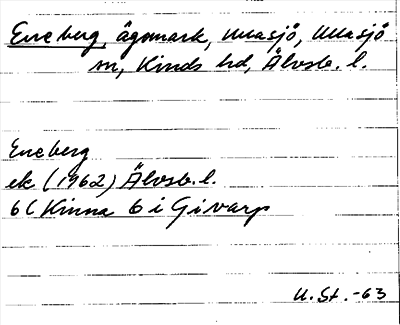 Eneberg, ägomark, Mjuasjö, Mjuasjö
sn, Kinds hd, Älvsb. l.
Eneberg
ek (1962) Älvsb. l.
6C Kinna 6 i Givarp
U. St. -63